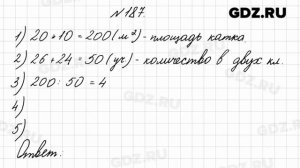 №187.
GDZ.RU
1) 20 * 10 = 200 (м²) - площадь катка
2) 26 + 24 = 50 (уч) - количество в двух кл.
3) 200 : 50 = 4
4)
5)
Ответ.
GDZ.RU